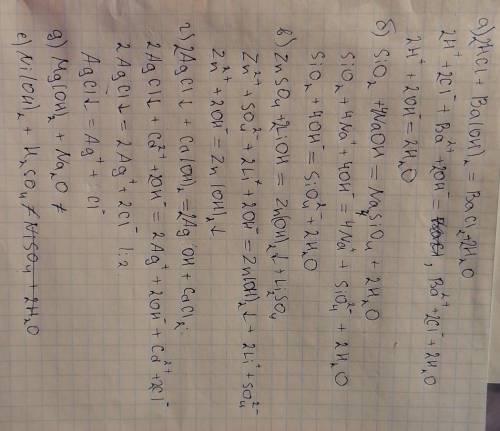 а) 2HCl + Ba(OH)₂ = BaCl₂+2H₂O
2H⁺ + 2Cl⁻ + Ba²⁺ + 2OH⁻ = Ba²⁺+2Cl⁻+2H₂O
2H⁺ + 2OH⁻ = 2H₂O
б) SiO₂ + 4NaOH = Na₄SiO₄ + 2H₂O
SiO₂ + 4Na⁺ + 4OH⁻ = 4Na⁺ + SiO₄²⁻ + 2H₂O
SiO₂ + 4OH⁻ = SiO₄²⁻ + 2H₂O
в) ZnSO₄ + 2LiOH = Zn(OH)₂↓ + Li₂SO₄
Zn²⁺ + SO₄²⁻ + 2Li⁺ + 2OH⁻ = Zn(OH)₂↓ + 2Li⁺ + SO₄²⁻
Zn²⁺ + 2OH⁻ = Zn(OH)₂↓
г) 2AgCl↓ + Ca(OH)₂ = 2AgOH + CaCl₂
2AgCl↓ + Ca²⁺ + 2OH⁻ = 2Ag⁺ + 2OH⁻ + Ca²⁺ + 2Cl⁻
2AgCl↓ = 2Ag⁺ + 2Cl⁻ |:2
AgCl↓ = Ag⁺ + Cl⁻
д) Mg(OH)₂ + Na₂O ≠
е) Ni(OH)₂ + H₂SO₄ ≠ NiSO₄ + 2H₂O